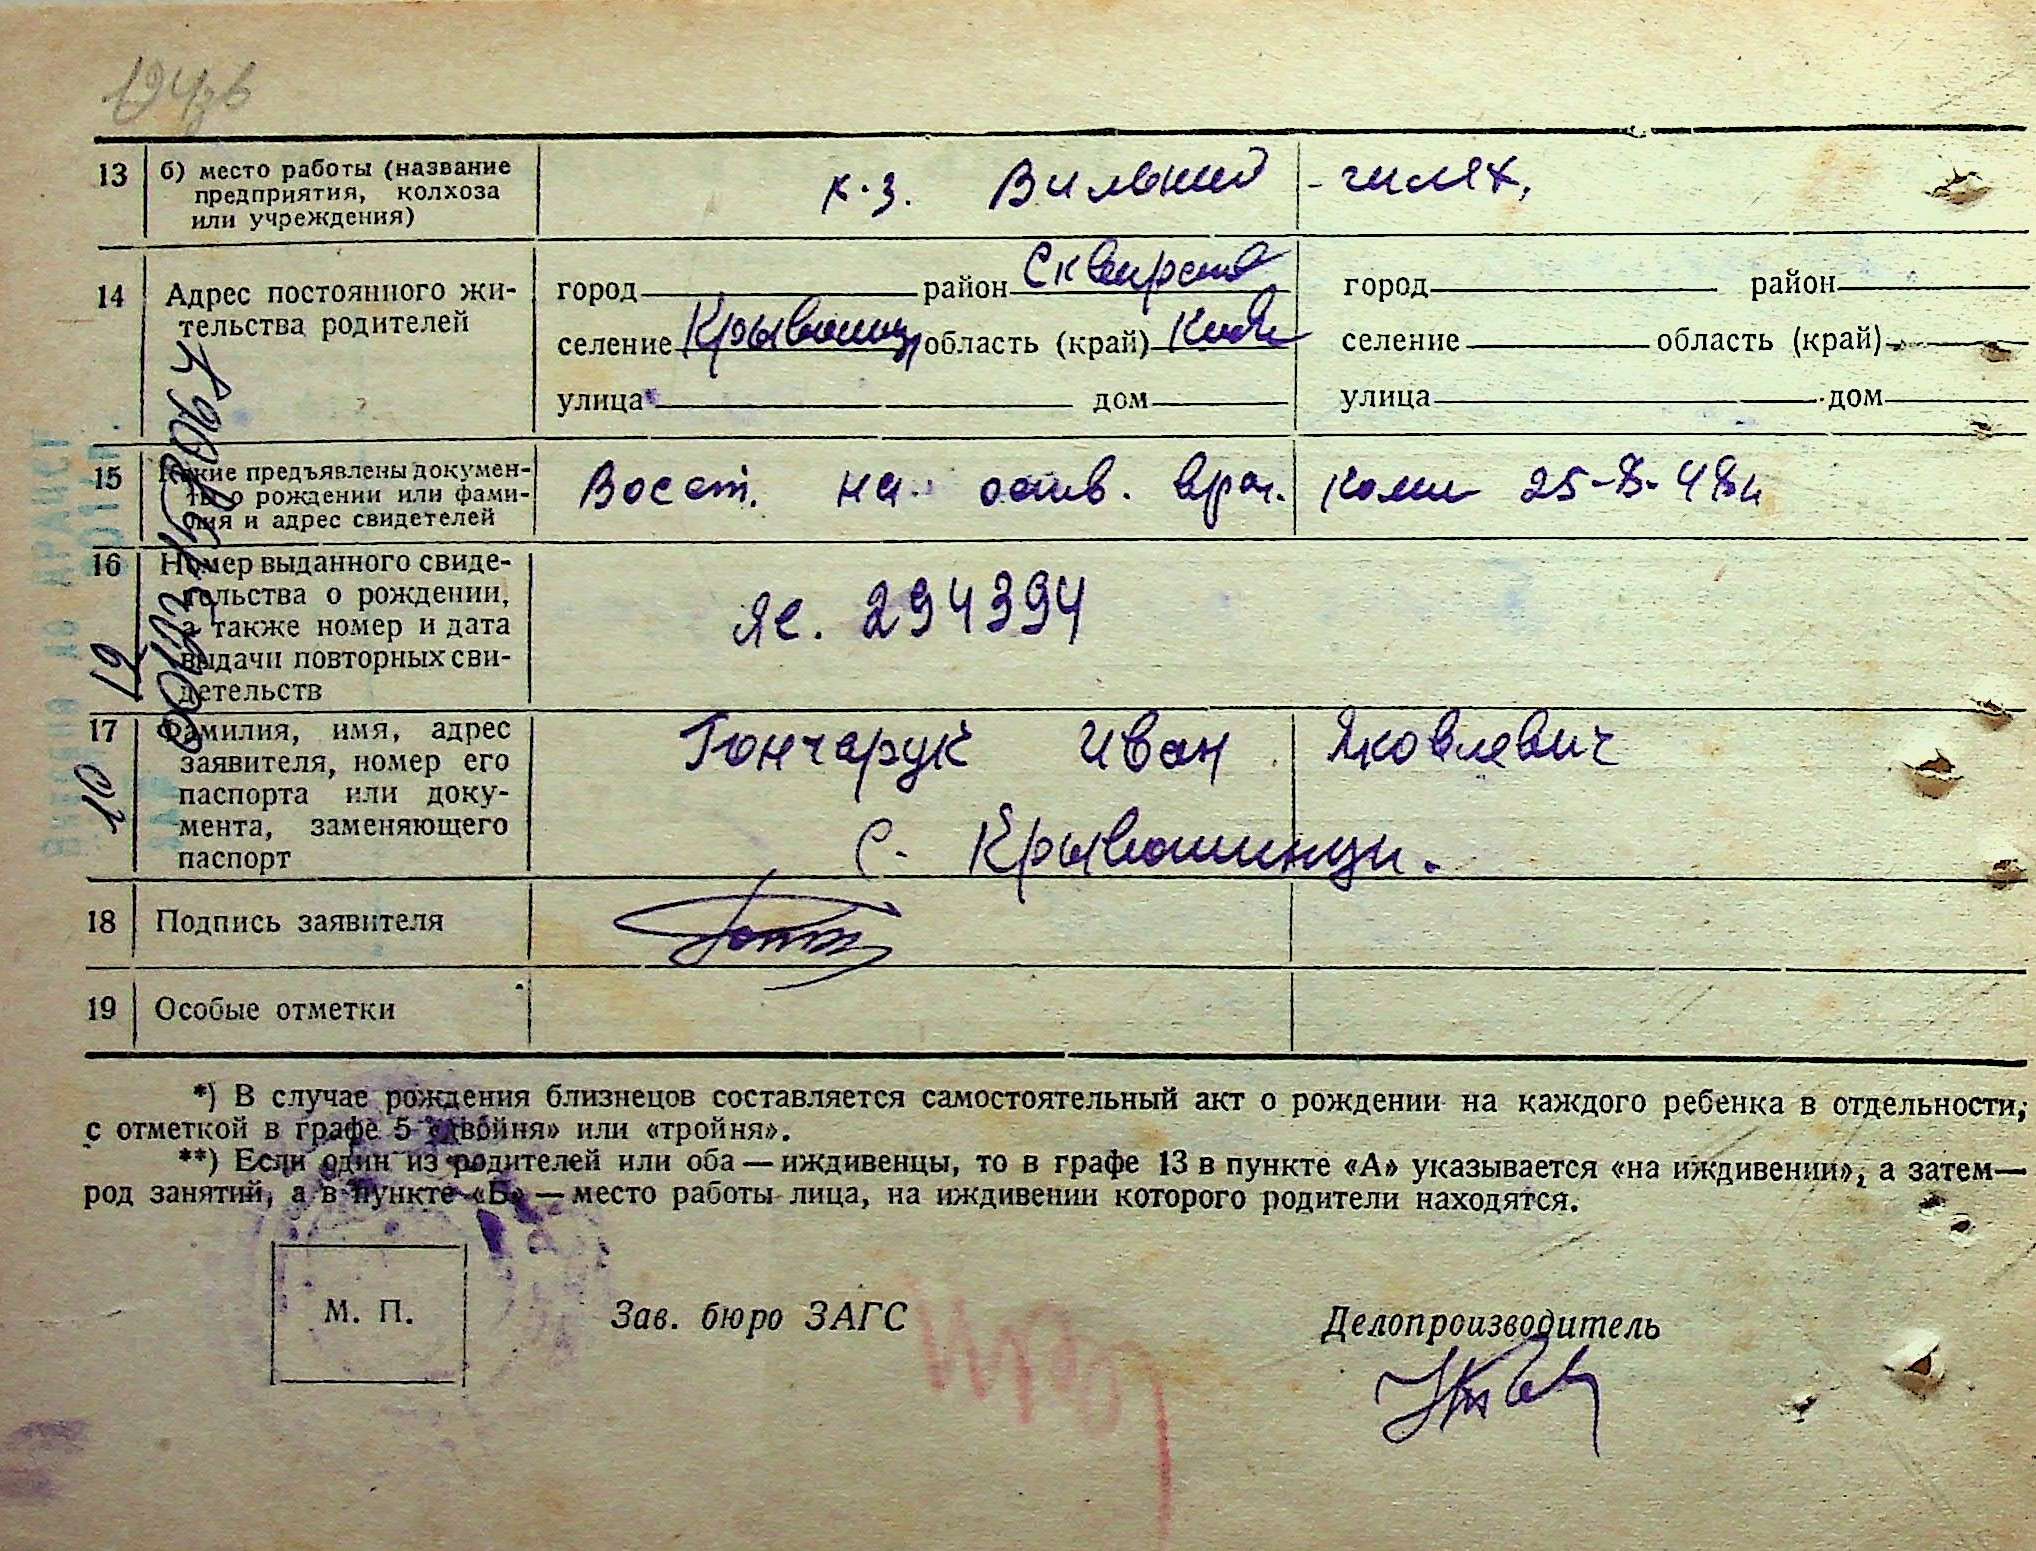 13 б) место работы (название предприятия, колхоза или учреждения) к-з. Вильний - шлях,
14 Адрес постоянного жительства родителей
город район Сквирский город район
селение Крывошинц область (край) Киев селение область (край)
улица дом улица дом
15 Какие предъявлены документы о рождении или фамилия и адрес свидетелей Восст. на осн. врач. Коми 25-8-48
16 Номер выданного свидетельства о рождении, а также номер и дата выдачи повторных свидетельств
Яс. 294394
17 Фамилия, имя, адрес заявителя, номер его паспорта или документа, заменяющего паспорт
Гончарук Иван Яковлевич
с. Крывошинци.
18 Подпись заявителя
19 Особые отметки
*) В случае рождения близнецов составляется самостоятельный акт о рождении на каждого ребенка в отдельности,
с отметкой в графе 5 «двойня» или «тройня».
**) Если один из родителей или оба — иждивенцы, то в графе 13 в пункте «А» указывается «на иждивении», а затем—
род занятий, а в пункте «Б» — место работы лица, на иждивении которого родители находятся.
М. П. Зав. бюро ЗАГС Делопроизводитель